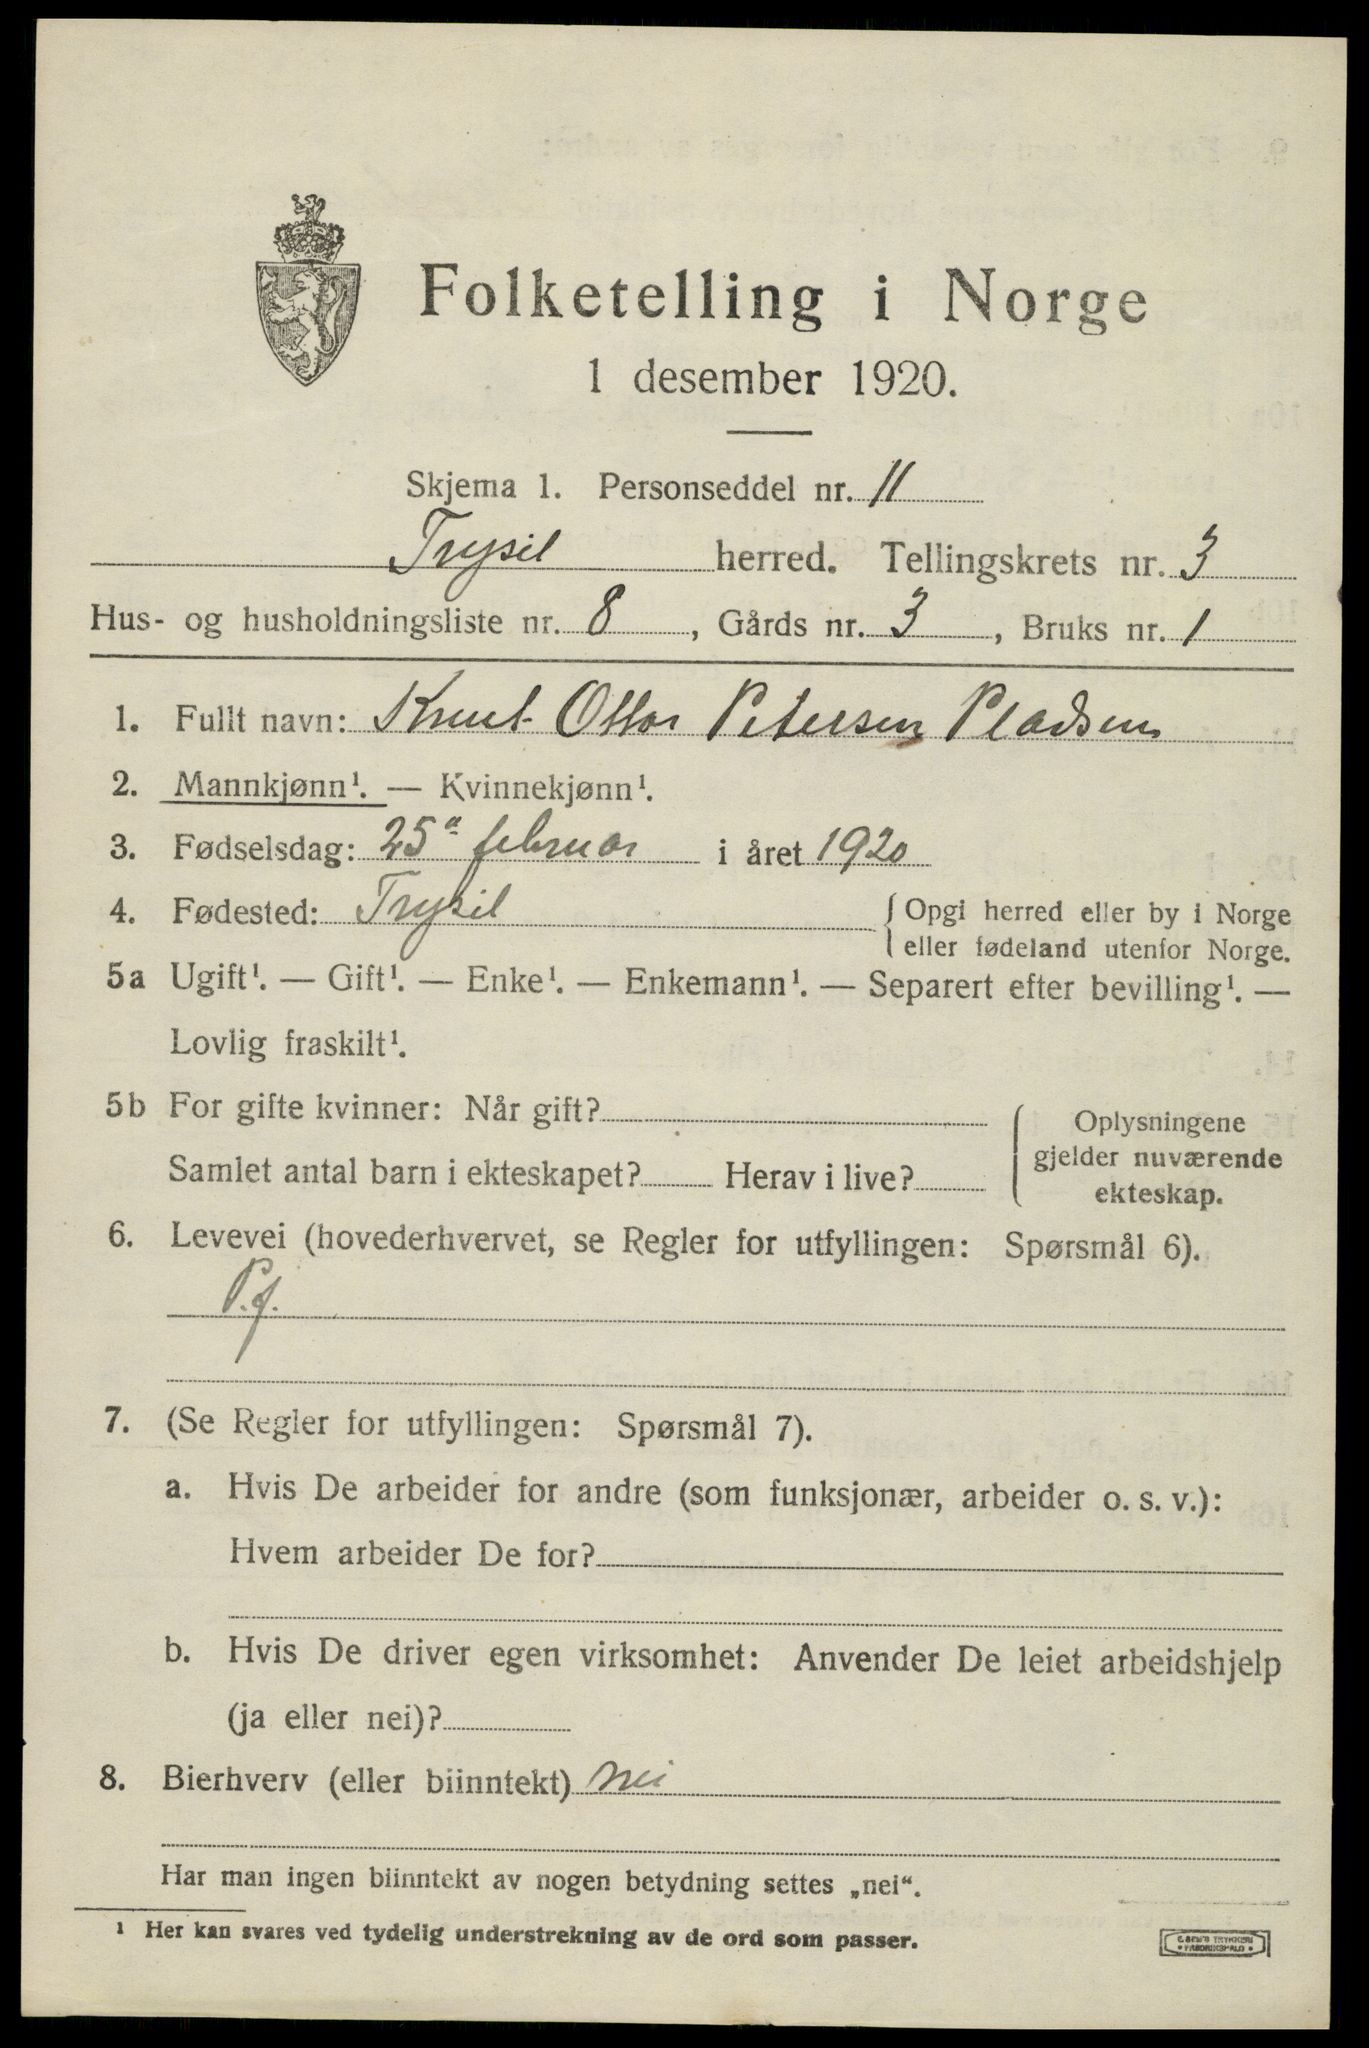 Folketelling i Norge
1 desember 1920.
Skjema 1. Personseddel nr. 11
Trysil herred. Tellingskrets nr. 3
Hus- og husholdningsliste nr. 8, Gårds nr. 3, Bruks nr. 1
1. Fullt navn: Knut Ottar Petersen Pladsen
2. Mannkjønn¹. — Kvinnekjønn¹.
3. Fødselsdag: 25" februar i året 1920
4. Fødested: Trysil {Opgi herred eller by i Norge
eller fødeland utenfor Norge.
5a Ugift¹. — Gift¹. — Enke¹. — Enkemann¹. — Separert efter bevilling¹. —
Lovlig fraskilt¹.
5b For gifte kvinner: Når gift?
Samlet antal barn i ekteskapet? Herav i live?
Oplysningene
gjelder nuværende
ekteskap.
6. Levevei (hovederhvervet, se Regler for utfyllingen: Spørsmål 6).
P.f.
7. (Se Regler for utfyllingen: Spørsmål 7).
a. Hvis De arbeider for andre (som funksjonær, arbeider o. s. v.):
Hvem arbeider De for?
b. Hvis De driver egen virksomhet: Anvender De leiet arbeidshjelp
(ja eller nei)?
8. Bierhverv (eller biinntekt) nei
Har man ingen biinntekt av nogen betydning settes „nei“.
¹ Her kan svares ved tydelig understrekning av de ord som passer.